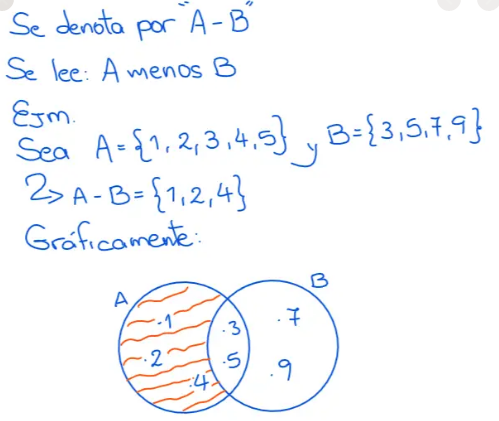 Se denota por "A - B"
Se lee: A menos B
Ejm.
Sea A = {1, 2, 3, 4, 5} y B = {3, 5, 7, 9}
A - B = {1, 2, 4}
Gráficamente:
A B
.1 .3 .7
.2 .5 .9
.4